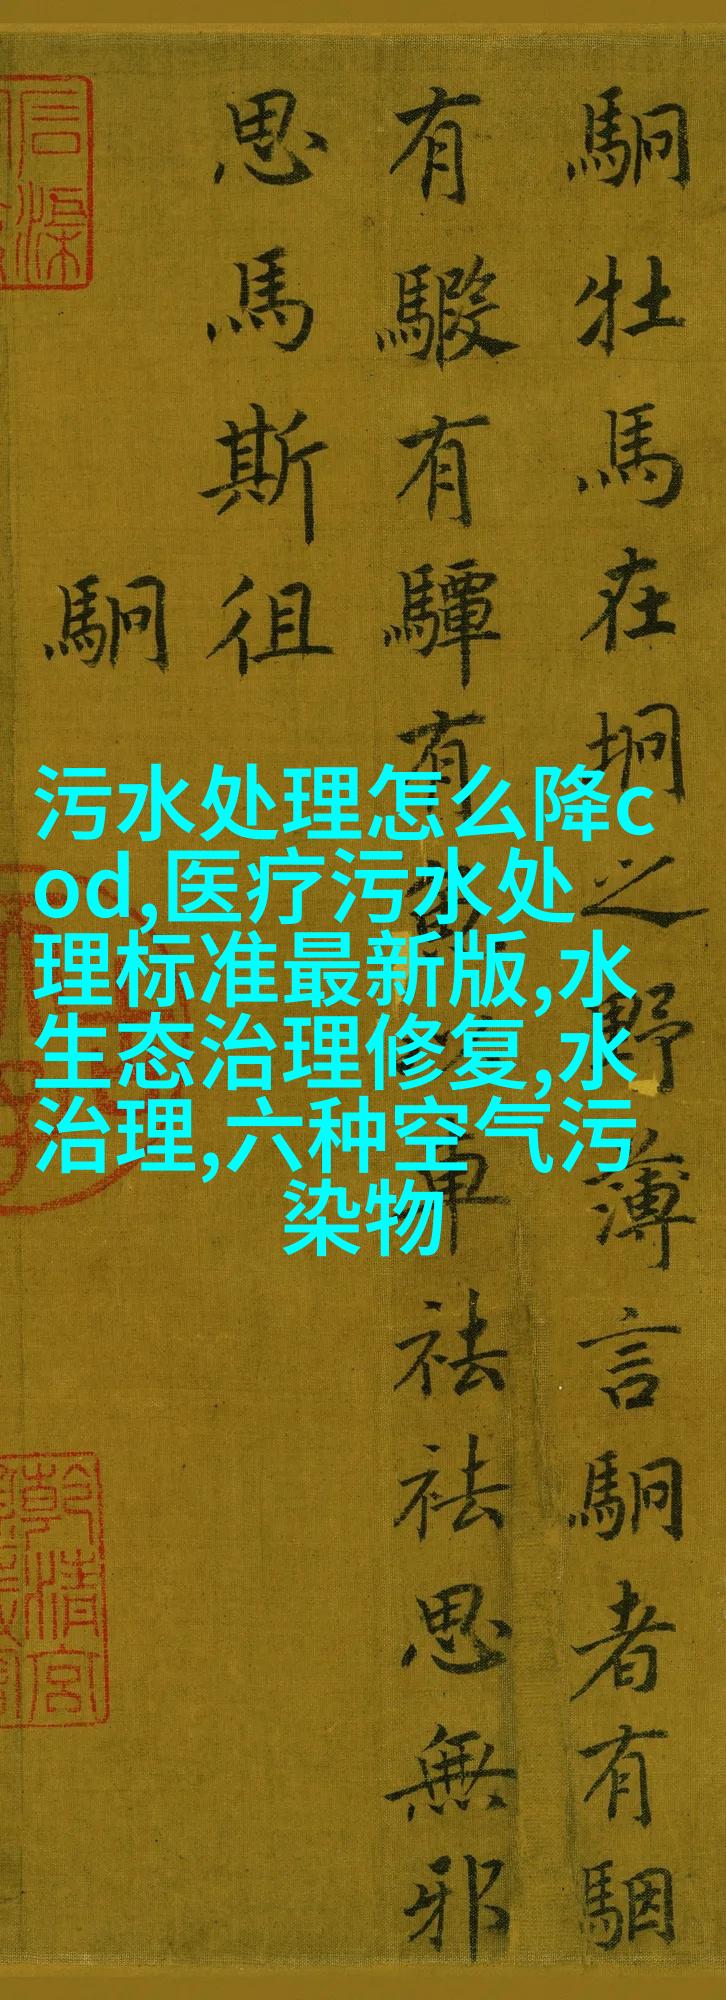 駉牡馬在坰之野薄言駉者有駰
有騢有驔有魚車祛祛思無邪
思馬斯徂
駉
污水处理怎么降c
od,医疗污水处
理标准最新版,水
生态治理修复,水
治理,六种空气污
染物
乾清宮